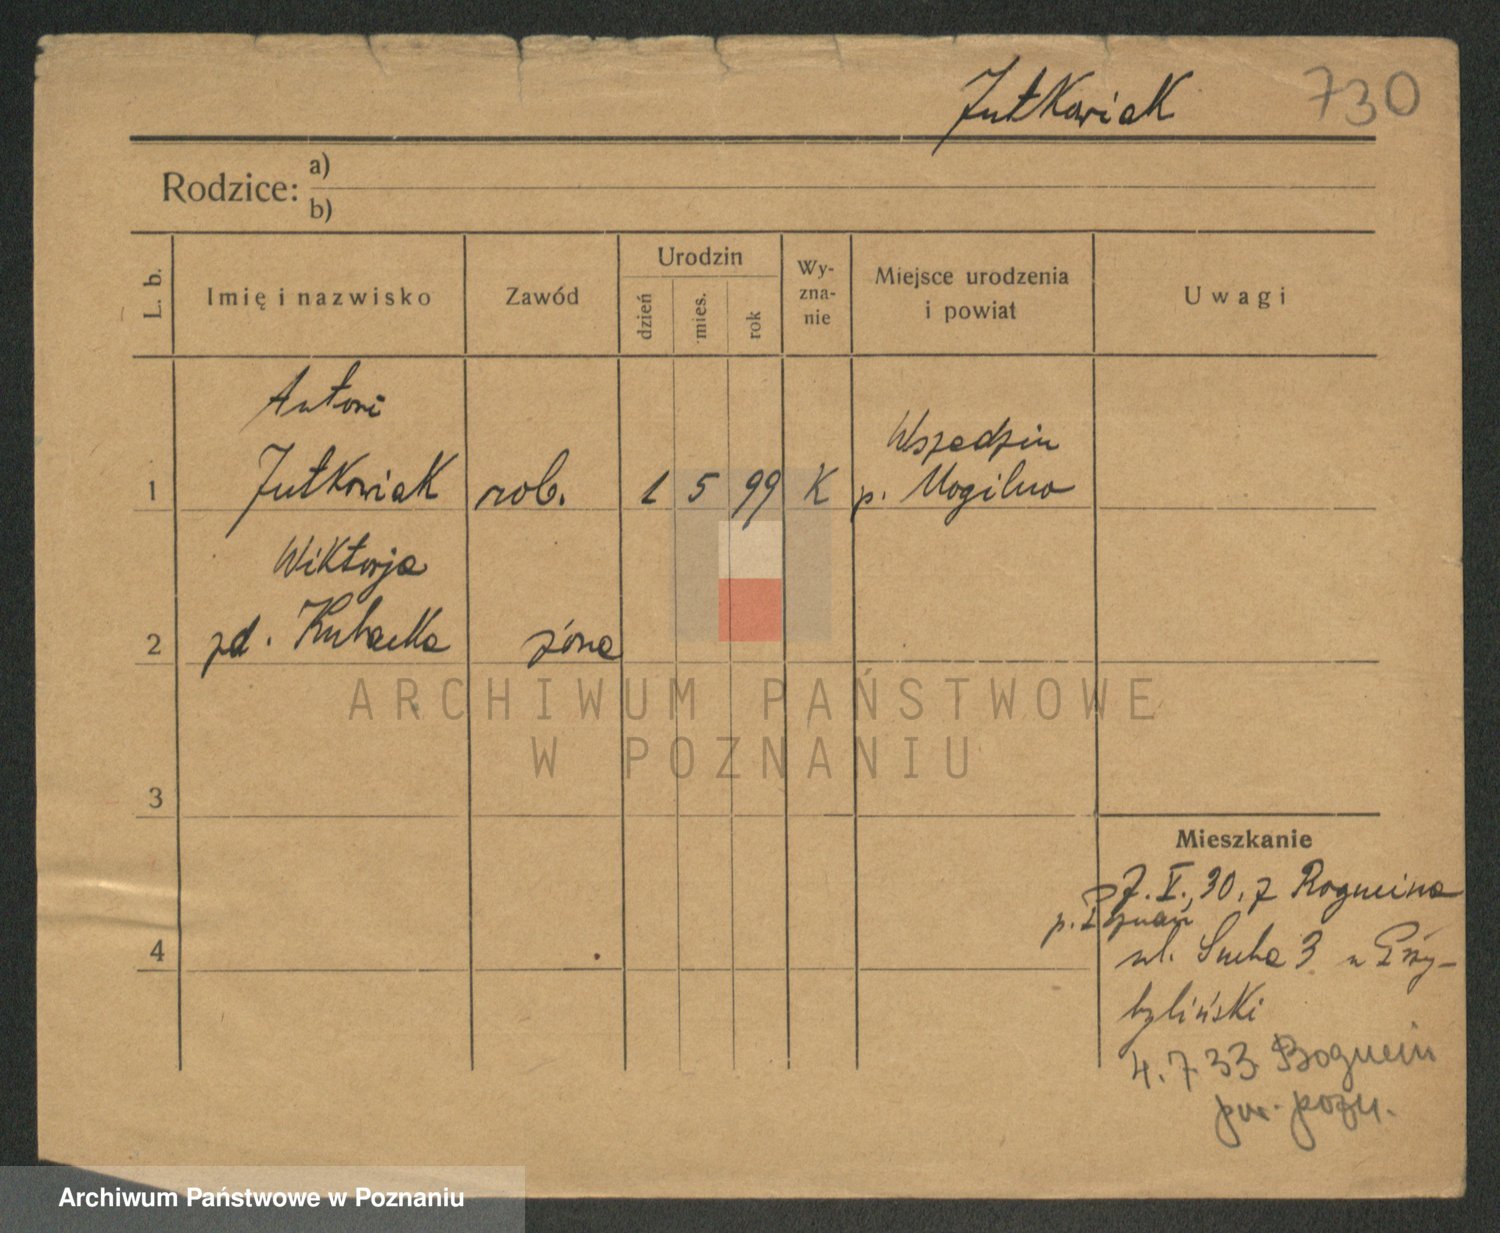 Jutkowiak 730
Rodzice: a)
b)
L. b.
Imię i nazwisko
Zawód
Urodzin
dzień
mies.
rok
Wy-
zna-
nie
Miejsce urodzenia
i powiat
Uwagi
Antoni
1 Jutkowiak rob. 1 5 99 K
Wszedzin
p. Mogilno
Wiktorja
2 zd. Kubacka żona
3
4
Mieszkanie
7. V. 30. z Rogucina
p. Poznań
ul. Sucha 3 u Przy-
byliński
4.7.33 Bogucin
pow. pozn.
ARCHIWUM PAŃSTWOWE
W POZNANIU
Archiwum Państwowe w Poznaniu